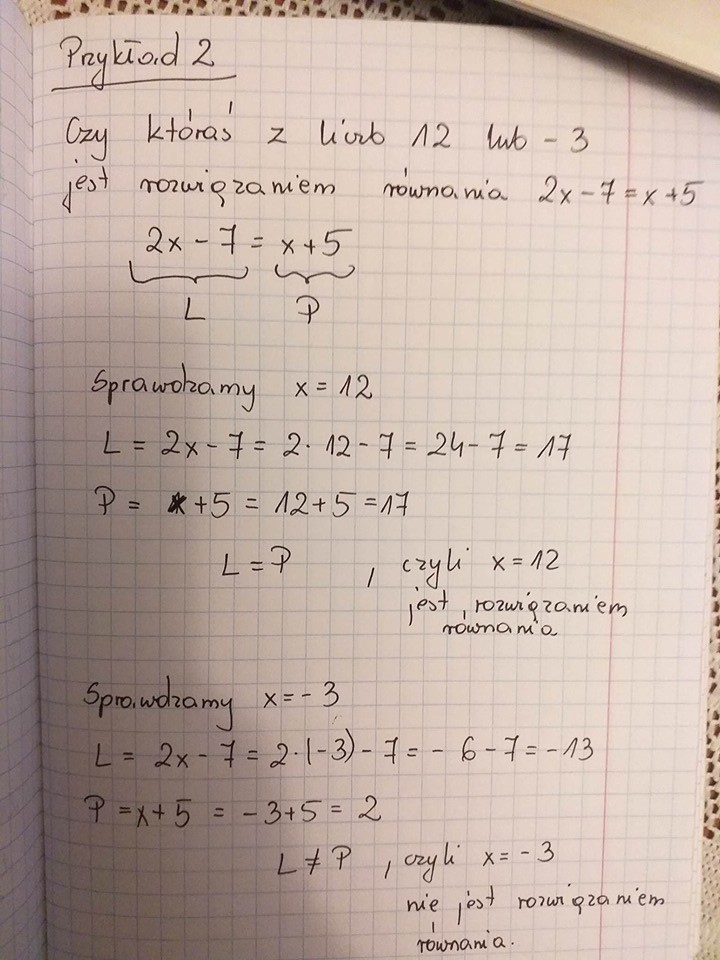 Przykład 2
Czy któraś z liczb 12 lub -3
jest rozwiązaniem równania 2x - 7 = x + 5
2x - 7 = x + 5
L P
Sprawdzamy x = 12
L = 2x - 7 = 2 · 12 - 7 = 24 - 7 = 17
P = x + 5 = 12 + 5 = 17
L = P , czyli x = 12
jest rozwiązaniem
równania
Sprawdzamy x = -3
L = 2x - 7 = 2·(-3) - 7 = - 6 - 7 = -13
P = x + 5 = -3 + 5 = 2
L ≠ P , czyli x = -3
nie jest rozwiązaniem
równania.